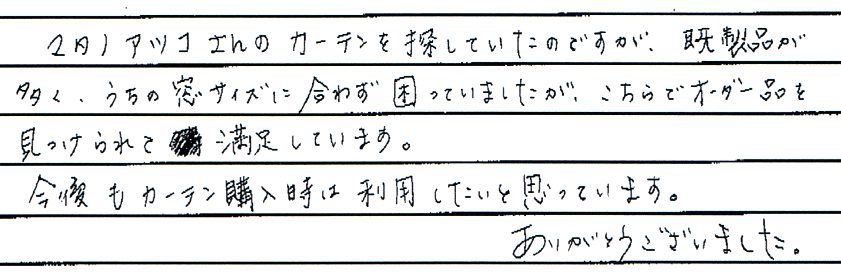 マリアツコさんのカーテンを探していたのですが、既製品が
多く、うちの窓サイズに合わず困っていましたが、こちらでオーダー品を
見つけられて満足しています。
今後もカーテン購入時は利用したいと思っています。
ありがとうございました。